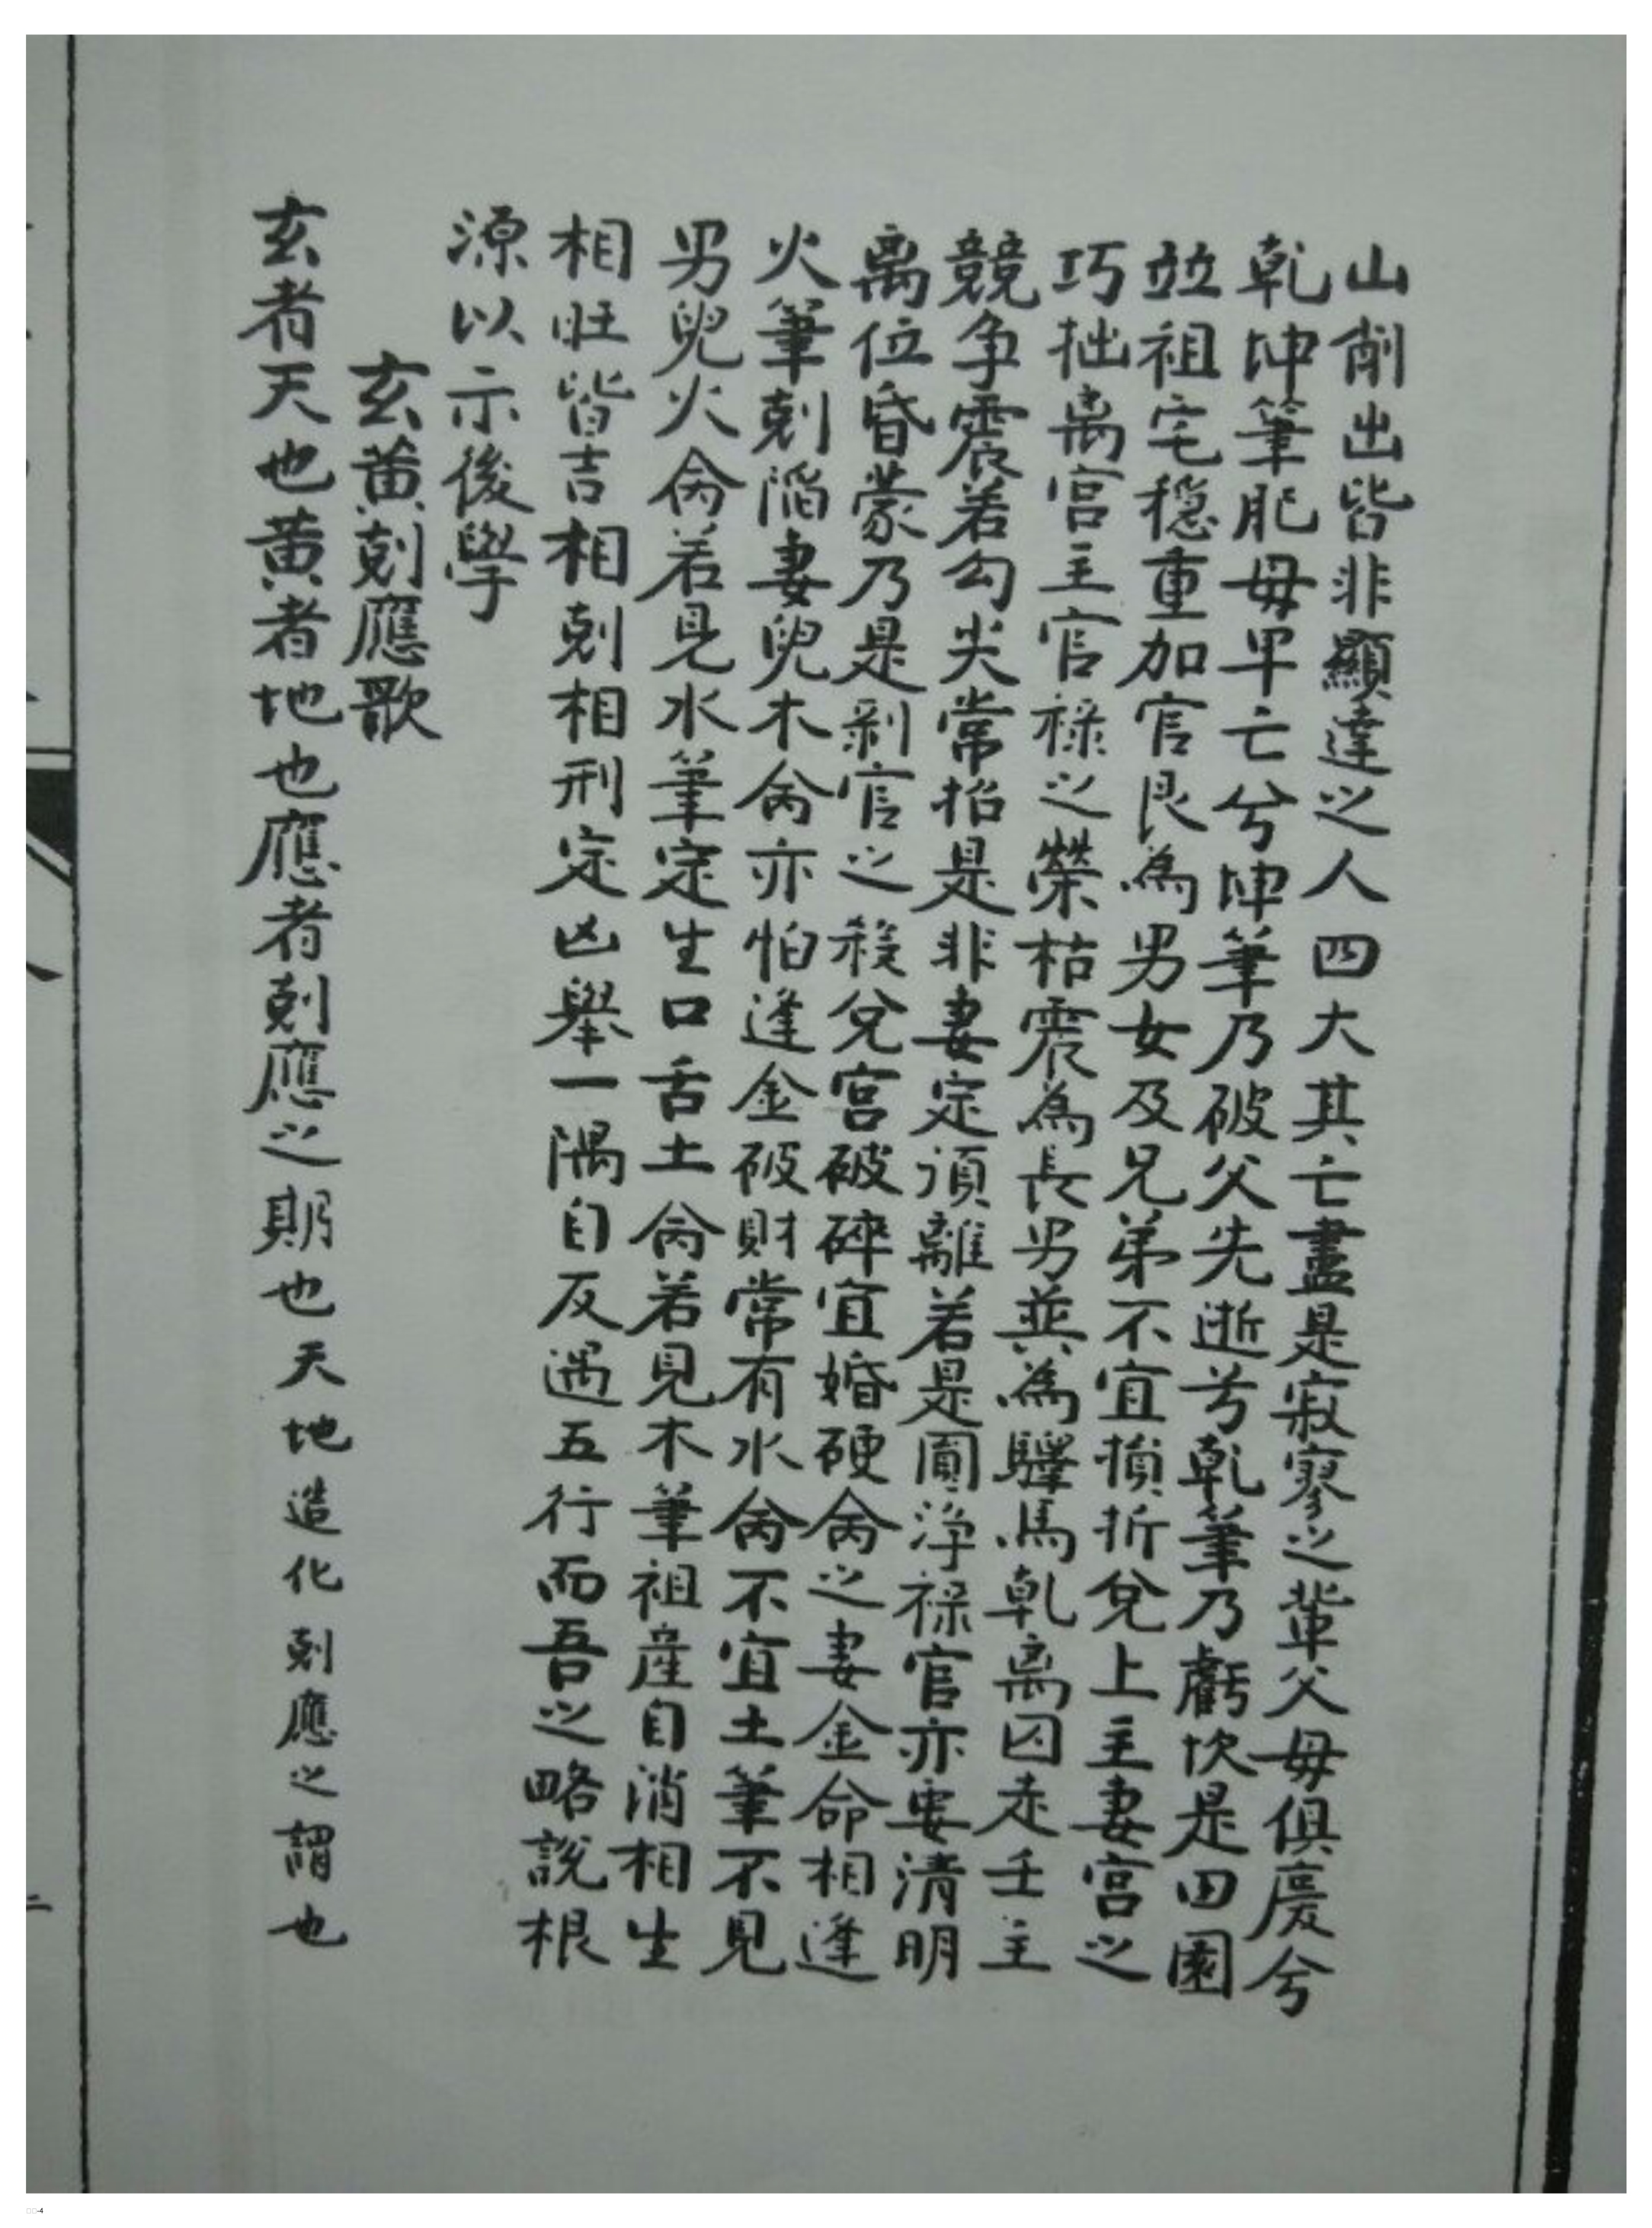 山削出皆非顯達之人四大其亡盡是寂寥之輩父母俱慶兮
乾坤筆肥母早亡兮坤筆乃破父先逝兮乾筆乃虧坎是田園
並祖宅穩重加官艮為男女及兄弟不宜損折兌上主妻宮之
巧拙离宮主官祿之榮枯震為長男並為驛馬乾离囚走壬主
競争震若勾尖常招是非妻定須離若是圓淨祿官亦要清明
离位昏蒙乃是剥官之殺兌宮破碎宜婚硬命之妻金命相逢
火筆剋陷妻兒木命亦怕逢金破財常有水命不宜土筆不見
男兒火命若見水筆定生口舌土命若見木筆祖産自消相生
相旺皆吉相剋相刑定凶舉一隅自反遇五行而吾之略說根
源以示後學
玄黃剋應歌
玄者天也黃者地也應者剋應之期也天地造化剋應之謂也
二
4